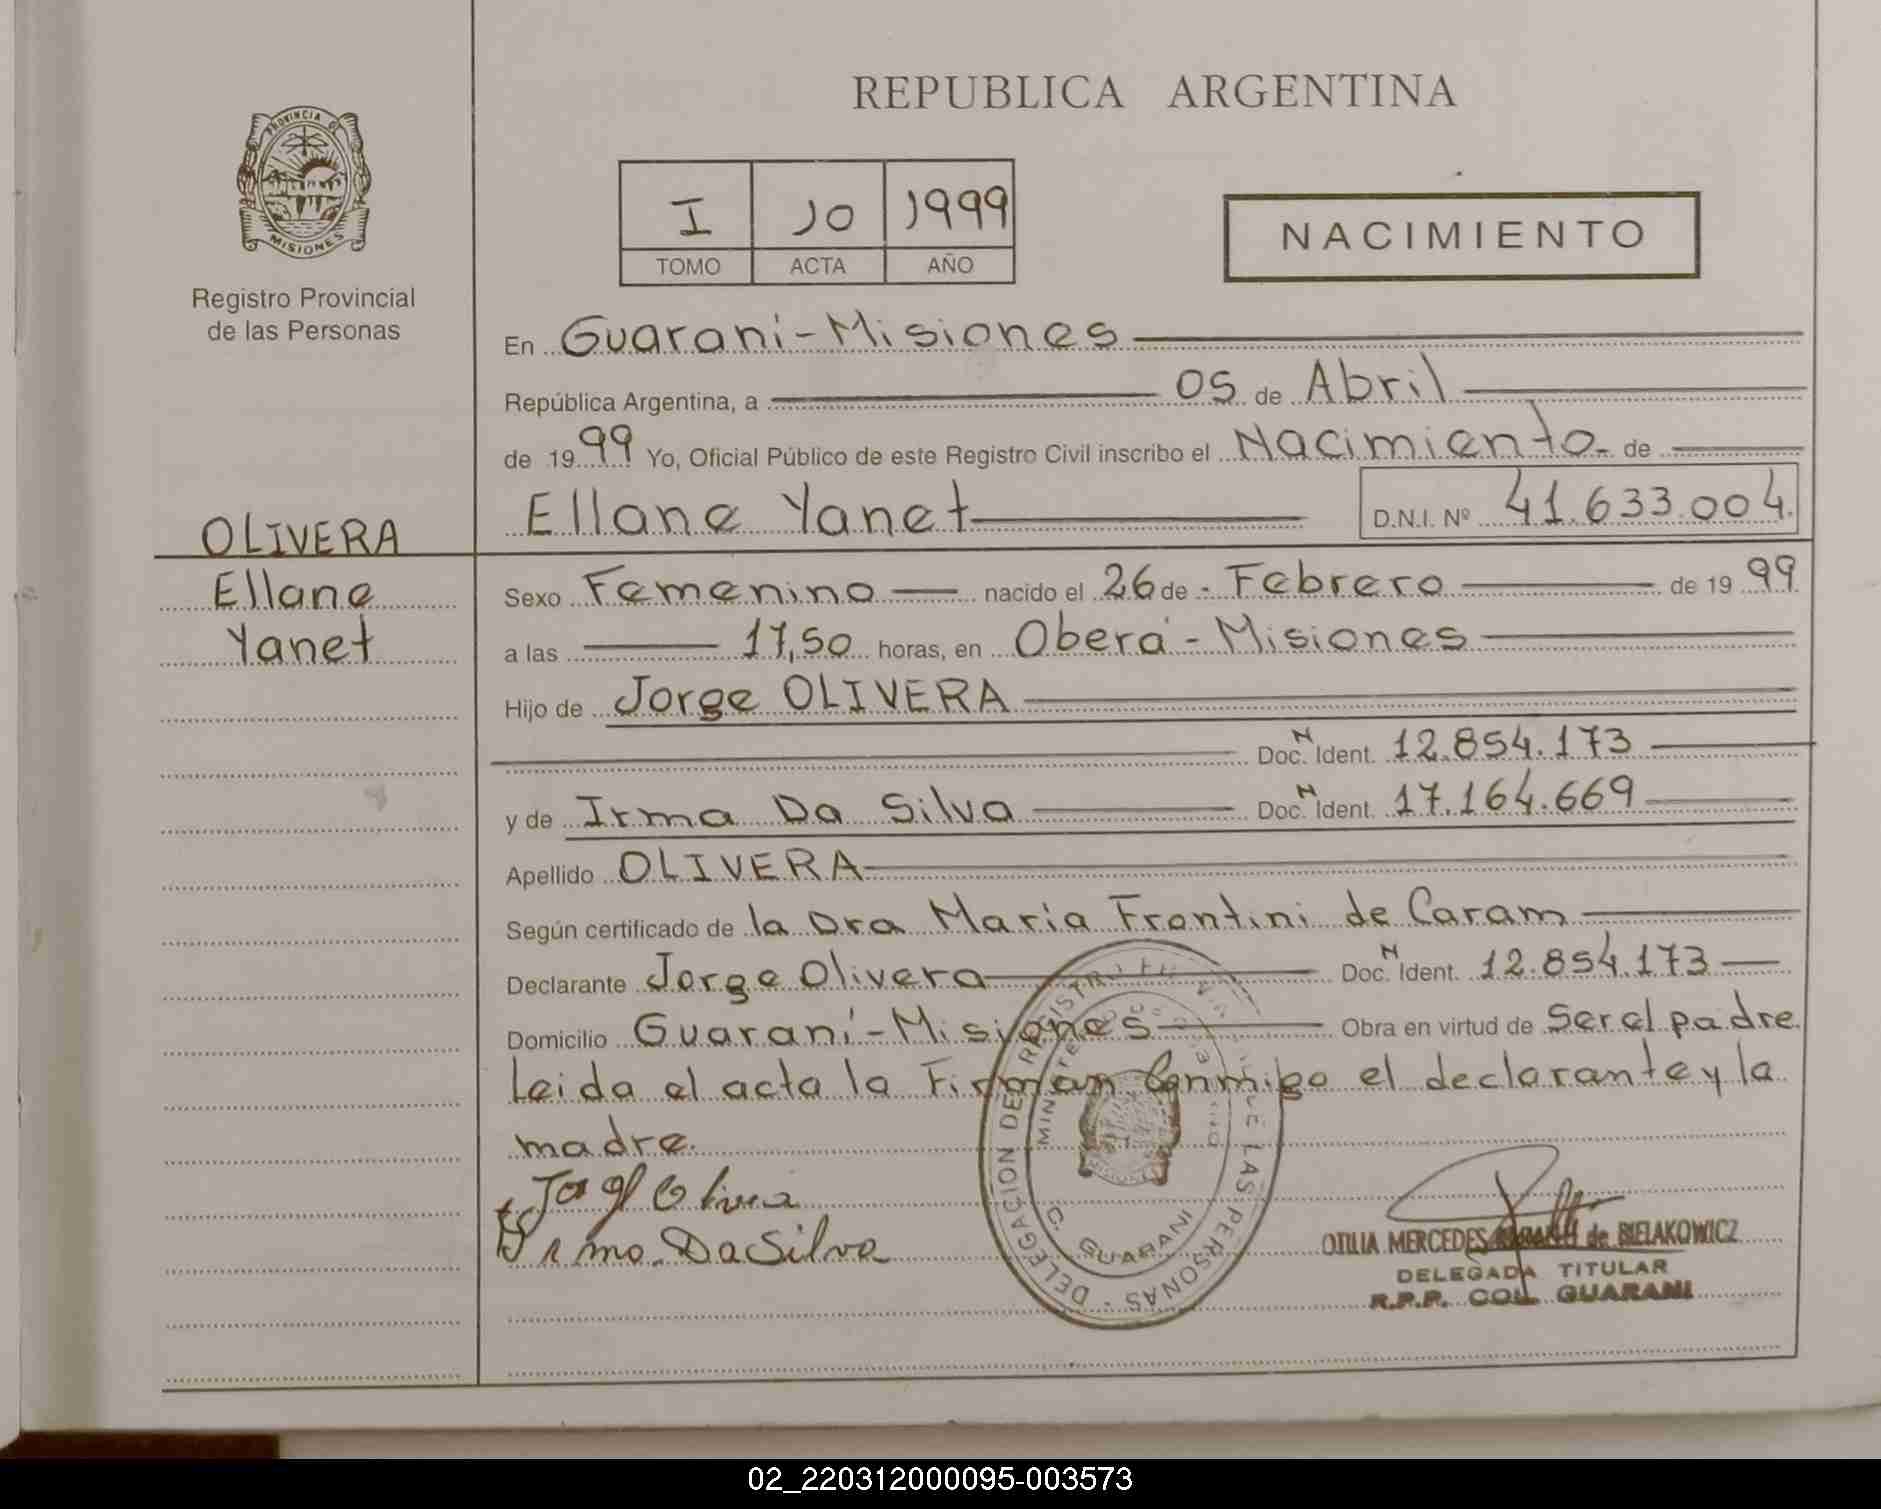 REPUBLICA ARGENTINA
PROVINCIA DE
MISIONES
Registro Provincial
de las Personas
I 10 1999
TOMO ACTA AÑO
NACIMIENTO
En Guaraní - Misiones
República Argentina, a 05 de Abril
de 1999 Yo, Oficial Público de este Registro Civil inscribo el Nacimiento. de
Ellane Yanet D.N.I. Nº 41.633.004.
OLIVERA
Ellane
Yanet
Sexo Femenino nacido el 26 de - Febrero de 1999
a las 17,50 horas, en Oberá - Misiones
Hijo de Jorge OLIVERA
Doc. N Ident. 12.854.173
y de Irma Da Silva Doc. N Ident. 17.164.669
Apellido OLIVERA
Según certificado de la Dra Maria Frontini de Caram
Declarante Jorge Olivera Doc. N Ident. 12.854.173
Domicilio Guaraní - Misiones Obra en virtud de Ser el padre
Leida el acta la Firman Conmigo el declarante y la
madre.
Jorge Olivera
Irma Da Silva
DELEGACION DEL REGISTRO DE LAS PERSONAS
C. GUARANI
OTILIA MERCEDES de BIELAKOWICZ
DELEGADA TITULAR
R.P.P. COL. GUARANI
02_220312000095-003573